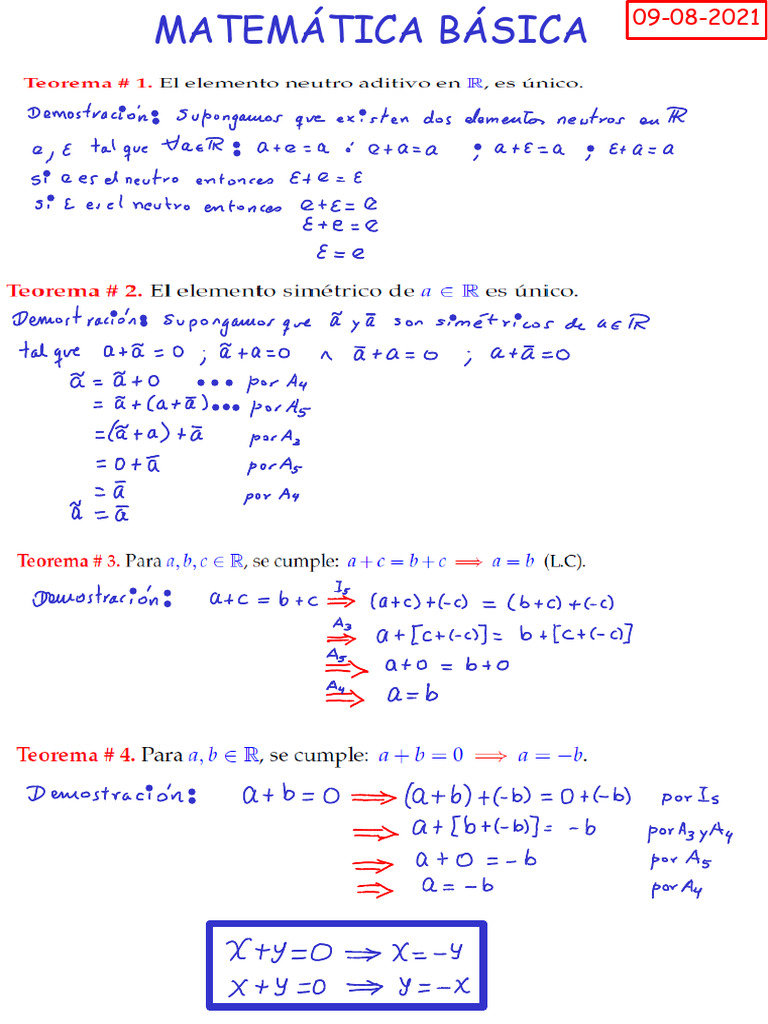 MATEMÁTICA BÁSICA
09-08-2021
Teorema # 1. El elemento neutro aditivo en ℝ, es único.
Demostración: Supongamos que existen dos elementos neutros en ℝ
e, ε tal que ∀a∈ℝ: a+e=a ó e+a=a ; a+ε=a ; ε+a=a
si e es el neutro entonces ε+e=ε
si ε es el neutro entonces e+ε=e
ε+e=e
ε=e
Teorema # 2. El elemento simétrico de a ∈ ℝ es único.
Demostración: Supongamos que ã y ā son simétricos de a∈ℝ
tal que a+ã=0 ; ã+a=0 ∧ ā+a=0 ; a+ā=0
ã = ã+0 ... por A₄
= ã+(a+ā)... por A₅
=(ã+a)+ā por A₃
= 0+ā por A₅
= ā por A₄
ã = ā
Teorema # 3. Para a, b, c ∈ ℝ, se cumple: a+c=b+c ⟹ a=b (L.C).
Demostración: a+c=b+c ⟹ I₅ (a+c)+(-c) = (b+c)+(-c)
⟹ A₃ a+[c+(-c)]= b+[c+(-c)]
⟹ A₅ a+0 = b+0
⟹ A₄ a=b
Teorema # 4. Para a, b ∈ ℝ, se cumple: a+b=0 ⟹ a=−b.
Demostración: a+b=0 ⟹ (a+b)+(-b)=0+(-b) por I₅
⟹ a+[b+(-b)]= -b por A₃ y A₄
⟹ a+0 =-b por A₅
⟹ a=-b por A₄
x+y=0 ⟹ x=-y
x+y=0 ⟹ y=-x